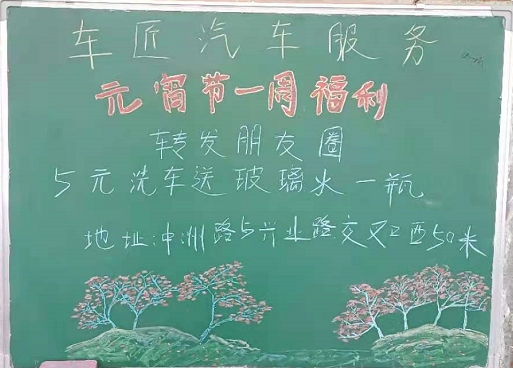 车匠汽车服务
元宵节一周福利
转发朋友圈
5元洗车送玻璃水一瓶
地址:中洲路与兴业路交叉口西50米